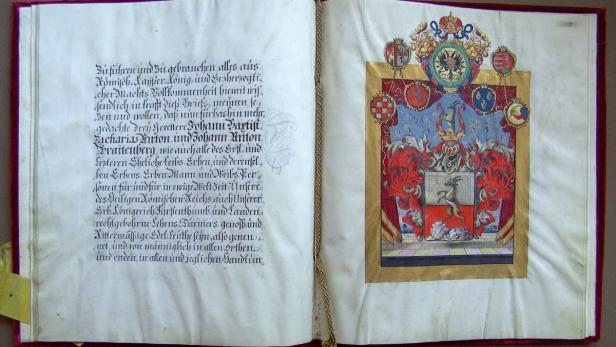 Zu führen und zu gebrauchen alles aus
Römisch-Kayßer-König- und Ertzhertzogli-
cher Machts Vollkommenheit hiemit wis-
sendlich in krafft diß Briefs, meynen, se-
zen und wollen, daß nun fürbaß hin mehr
gedachte drey Gevettere Johann Baptist
Zacharias Anton und Johann Anton
Braitenberg, wie auch alle des Erst- und
lezteren Eheliche Leibs-Erben, und derensel-
ben Erbens-Erben Mann- und Weibs-Per-
sonen für und für in ewige Welt-Zeit Unsere
des Heiligen Römischen Reichs, auch Unserer
Erb-Königreich Fürstenthumb und Landen
rechtgebohrne Lehens-Turniers-genoß und
Rittermässige Edel-Leuthe seyn, also genen-
net, und von männiglich in allen Orthen
und enden, in allen und jeglichen Handlun-